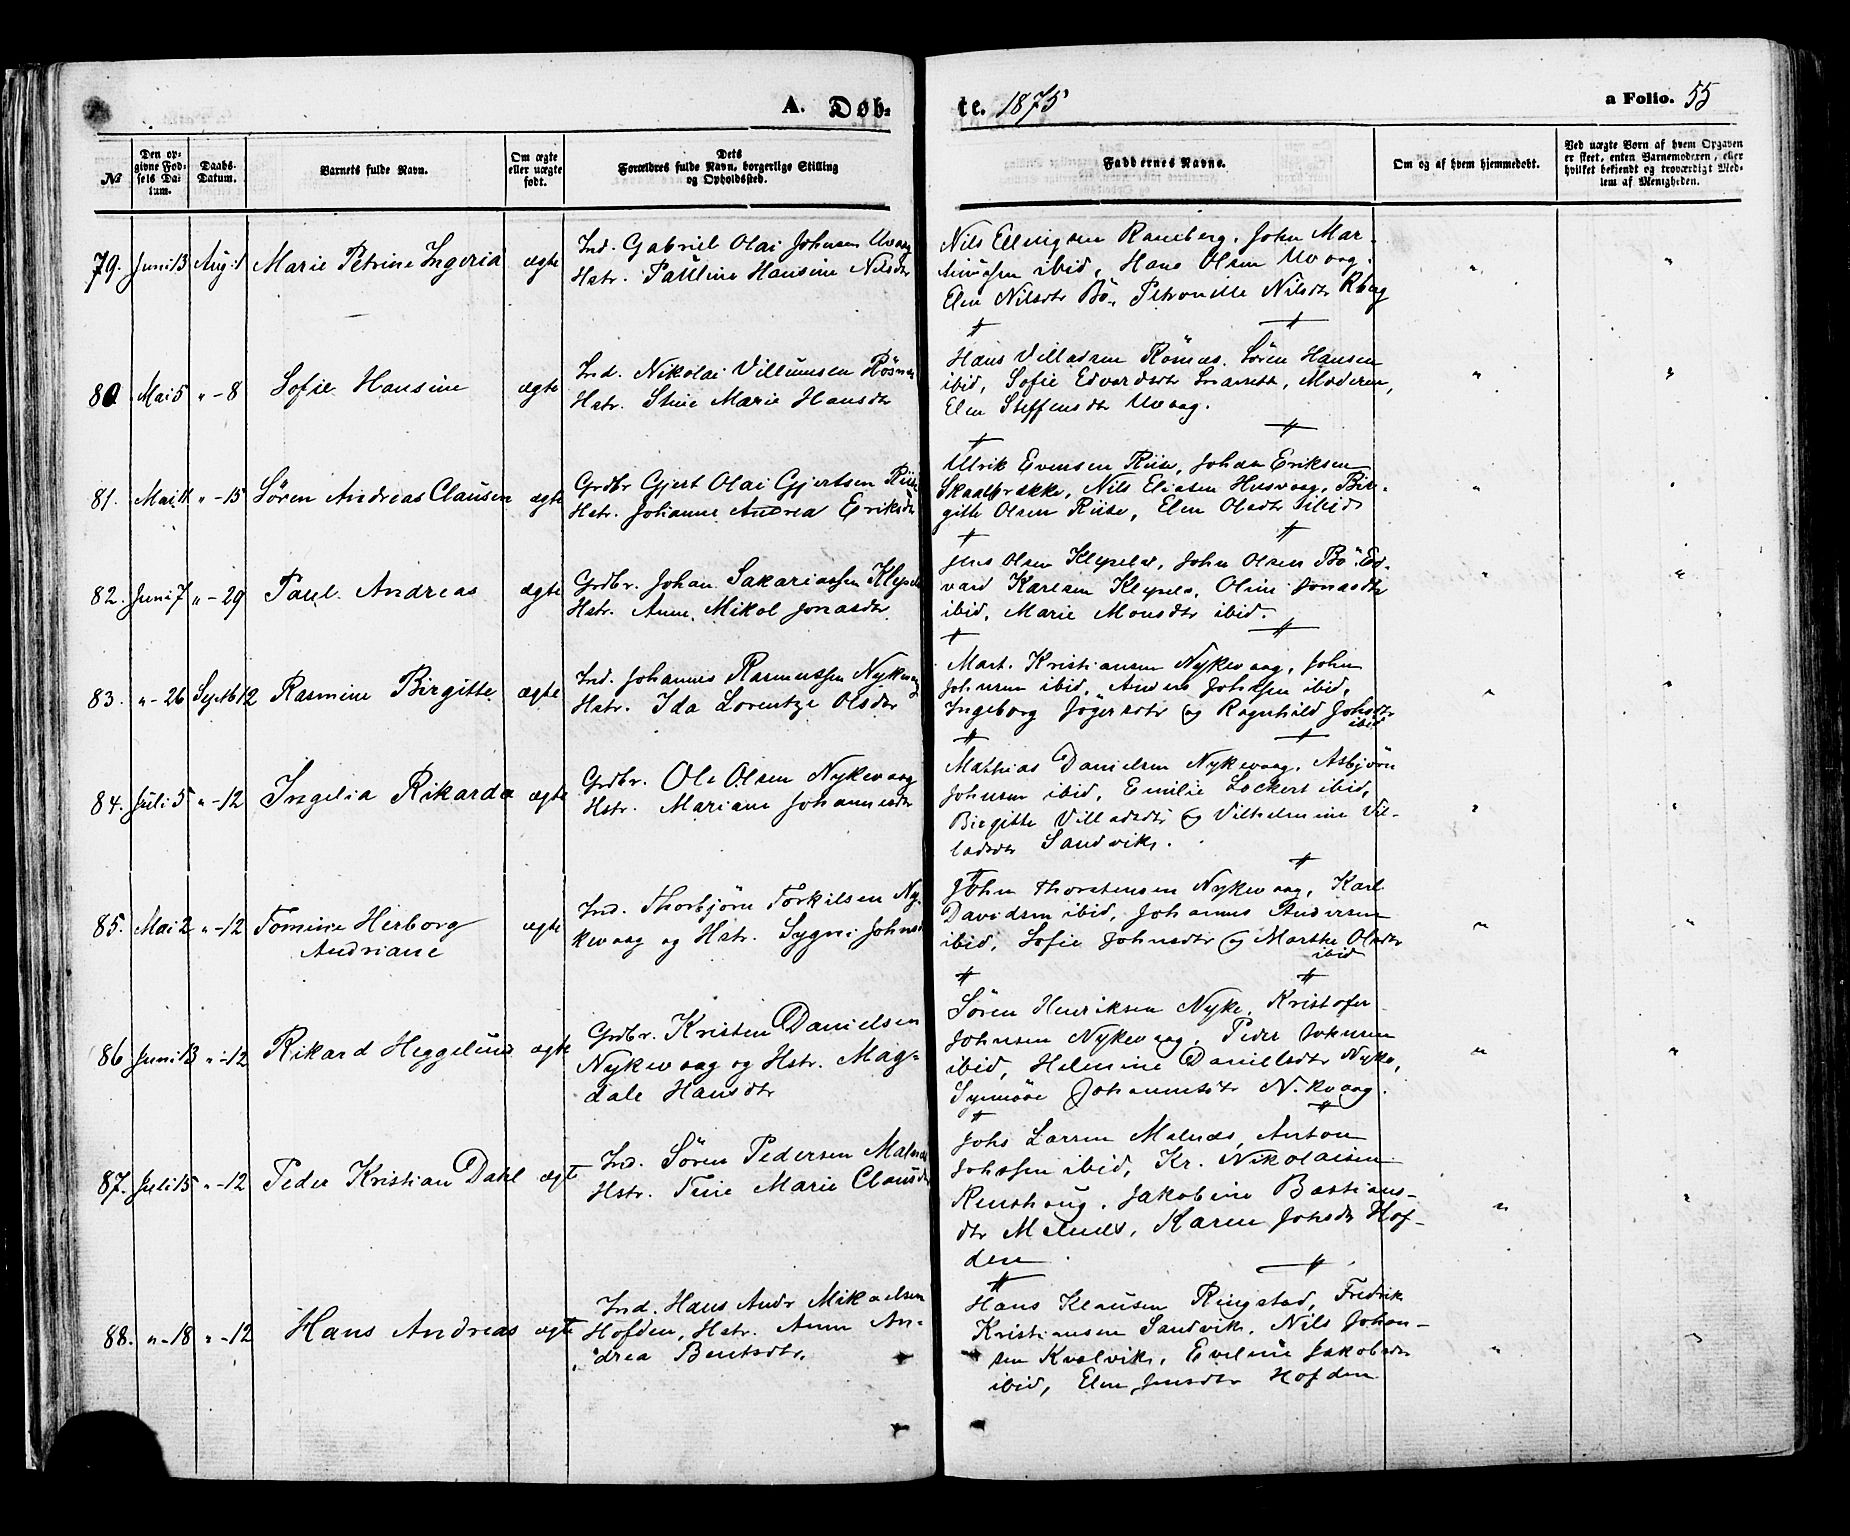 A. Døb-
te. 1875
a Folio. 55
№
Den op-
givne Fød-
sels Da-
tum.
Daabs-
Datum.
Barnets fulde Navn.
Om ægte
eller uægte
født.
Dets
Forældres fulde Navn, borgerlige Stilling
og Opholdssted.
Faddernes Navne.
Om og af hvem hjemmedøbt.
Ved uægte Børn af hvem Opgaven
er skeet, enten Barnemoderen, eller
hvilket bekjendt og troværdigt Med-
lem af Menigheden.
79. Juni 13 Aug. 1 Marie Petrine Ingeria ægte
Ind. Gabriel Olai Johnsen Uvaag
Hstr. Pauline Hansine Nilsdtr
Nils Ellingsen Ramberg, John Mar-
ibid, Hans Olsen Uvaag,
Elen Nilsdtr Bö, Petronelle Nilsdtr Rberg
80 Mai 5 " - 8 Sofie Hansine ægte
Ind. Nikolai Villumsen Rösnes
Hstr. Stine Marie Hansdtr
Hans Villadsen Römæs, Sören Hansen
ibid, Sofie Edvardsdtr Smaasett, Moderen,
Elen Steffensdtr Uvaag.
81. Mai 11 " - 15 Sören Andreas Clausen ægte
Grdbr Gjert Olai Gjertsen Riise
Hstr. Johanne Andrea Eriksdtr
Ulrik Evensen Riise, Johan Eriksen
Skaalbrække, Nils Eliasen Husvaag, Bir-
gitte Olsen Riise, Elen Olsdtr ibid
82. Juni 7 " - 29 Paul Andreas ægte
Grdbr. Johan Sakariassen Klepels
Hstr. Anne Mikol Jonasdtr
Jens Olsen Klepels, John Olsen Bö, Ed-
vard Karlsen Klepels, Oline Jonasdtr
ibid, Marie Monsdtr ibid.
83. " - 26 Septb 12 Rasmine Birgitte ægte
Ind. Johannes Rasmussen Nykvaag
Hstr. Ida Lorentze Olsdtr
Mart. Kristiansen Nykevaag, John
Johnsen ibid, Anders Johnsen ibid,
Ingeborg Jögersdtr og Ragnhild Johsdtr
ibid
84. Juli 5 " - 12 Ingelia Rikarda ægte
Grdbr. Ole Olsen Nykevaag
Hstr. Mariane Johannesdtr
Mathias Danielsen Nykevaag, Asbjörn
Johnsen ibid, Emilie Lockert ibid,
Birgitte Villadsdtr og Vilhelmine Vil-
ladsdtr Sandvik.
85. Mai 2 " - 12 Tomine Herborg
Andriane ægte
Ind. Thorbjörn Torkilsen Ny-
kevaag og Hstr. Sygni Johnsd
John Thorstensen Nykevaag, Karl
Davidsen ibid, Johannes Andersen
ibid, Sofie Johnsdtr og Marthe Olsdtr
ibid
86 Juni 13 " - 12 Rikard Heggelund ægte
Grdbr. Kristen Danielsen
Nykevaag og Hstr. Mag-
dale Hansdtr
Sören Henriksen Nyke, Kristofer
Johnsen Nykevaag, Peder Johnsen
ibid, Helmine Danielsdtr Nyke,
Synnöve Johannesdtr N.kvaag.
87. Juli 15 " - 12 Peder Kristian Dahl ægt
Ind. Sören Pedersen Malnes
Hstr. Tine Marie Clausdtr
Johs Larsen Malnes, Anton
Johssen ibid, Kr. Nikolaisen
Renshaug, Jakobine Bastians-
dtr Melnes, Karen Johsdtr Hof-
den
88. " - 18 " - 12 Hans Andreas ægte
Ind. Hans Andr Mikaelsen
Hofden, Hstr. Anne An-
drea Bentsdtr.
Hans Klausen Ringstad, Fredrik
Kristiansen Sandvik, Nils Johan-
sen Kvalvik, Eveline Jakobsdtr
ibid, Elen Jensdtr Hofden